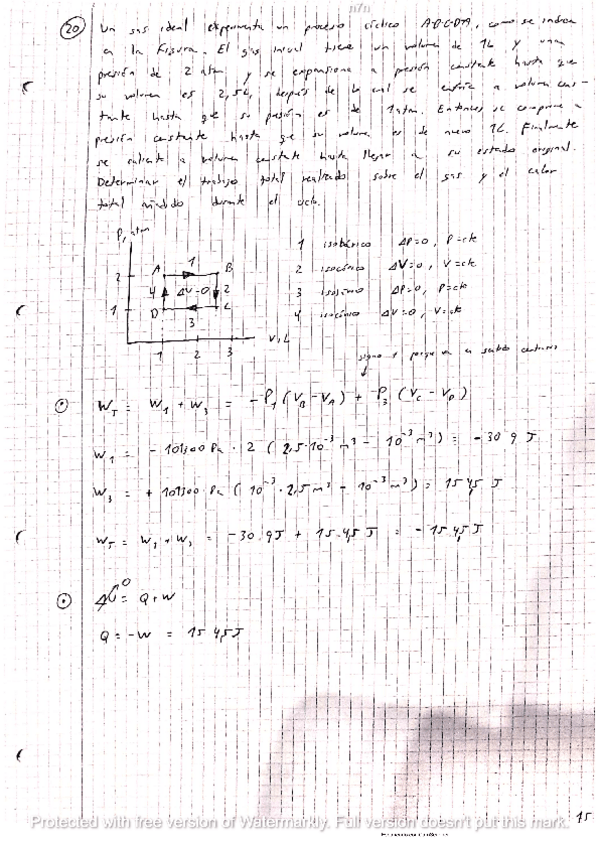 n7n
20 Un gas ideal experimenta un proceso cíclico A-B-C-D-A, como se indica
en la Figura. El gas inicial tiene un volumen de 1L y una
presión de 2 atm, y se expansiona a presión constante hasta que
su volumen es 2,5L, después de lo cual se enfría a volumen cons-
tante hasta que su presión es de 1atm. Entonces se comprime a
presión constante hasta que su volumen es de nuevo 1L. Finalmente
se calienta a volumen constante hasta llegar a su estado original.
Determinar el trabajo total realizado sobre el gas y el calor
total añadido durante el ciclo.
P, atm
1 isobárico ΔP=0, P=cte
2 isocórico ΔV=0, V=cte
3 isobárico ΔP=0, P=cte
4 isocórico ΔV=0, V=cte
A 1 B
2
4 ΔU=0 2
1 D C
3
1 2 3 V, L
signo + porque va en sentido
W_T = W_1 + W_3 = -P_1 (V_B - V_A) + P_3 (V_C - V_D)
W_1 = - 101300 Pa · 2 (2,5·10^-3 m^3 - 10^-3 m^3) = -30 9 J
W_3 = + 101300 Pa (10^-3 · 2,5 m^3 - 10^-3 m^3) = 15 45 J
W_T = W_1 + W_3 = -30 9 J + 15 45 J = - 15 45 J
ΔU^0 = Q + W
Q = -W = 15 45 J
15
Protected with free version of Watermarkly. Full version doesn't put this mark.